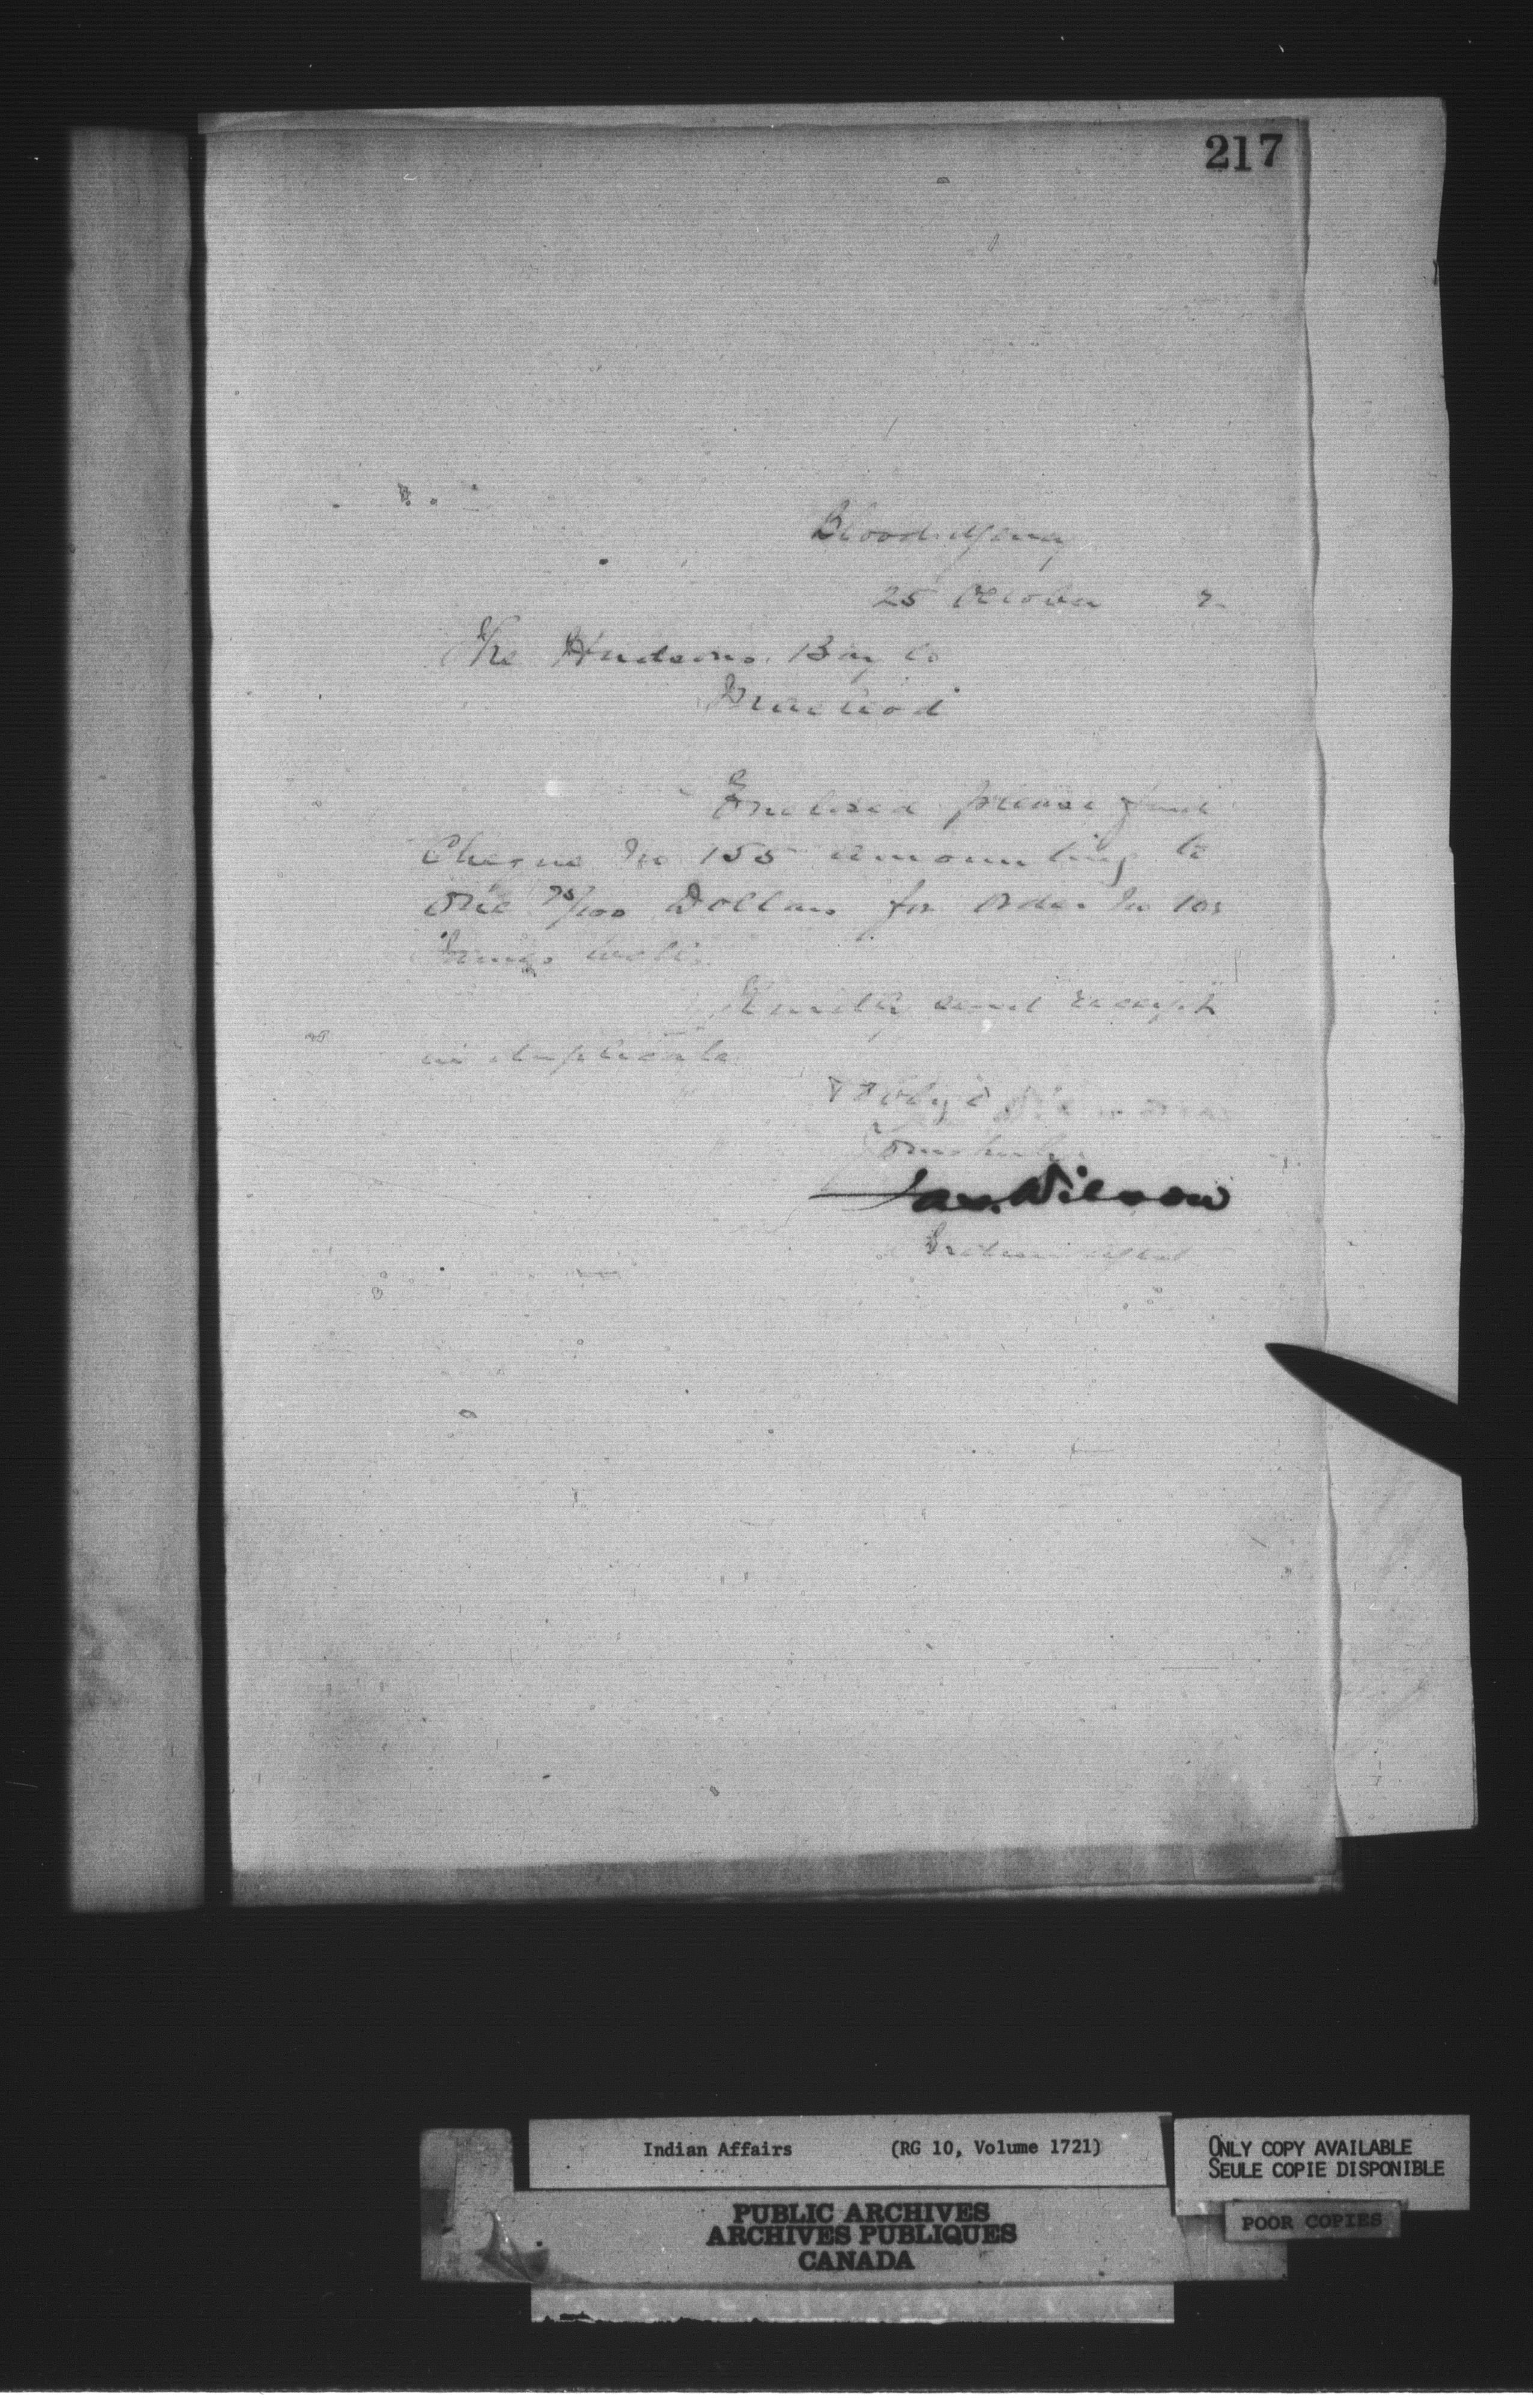 217
Blood Agency
25 October 7
The Hudsons Bay Co
Macleod
Enclosed please find
Cheque No 155 amounting to
One 75/100 Dollars for Order No 103
James
Kindly send receipt
in duplicate
Obdt
Yours truly
Jas. Wilson
Indian Agent
Indian Affairs (RG 10, Volume 1721)
ONLY COPY AVAILABLE
SEULE COPIE DISPONIBLE
POOR COPIES
PUBLIC ARCHIVES
ARCHIVES PUBLIQUES
CANADA